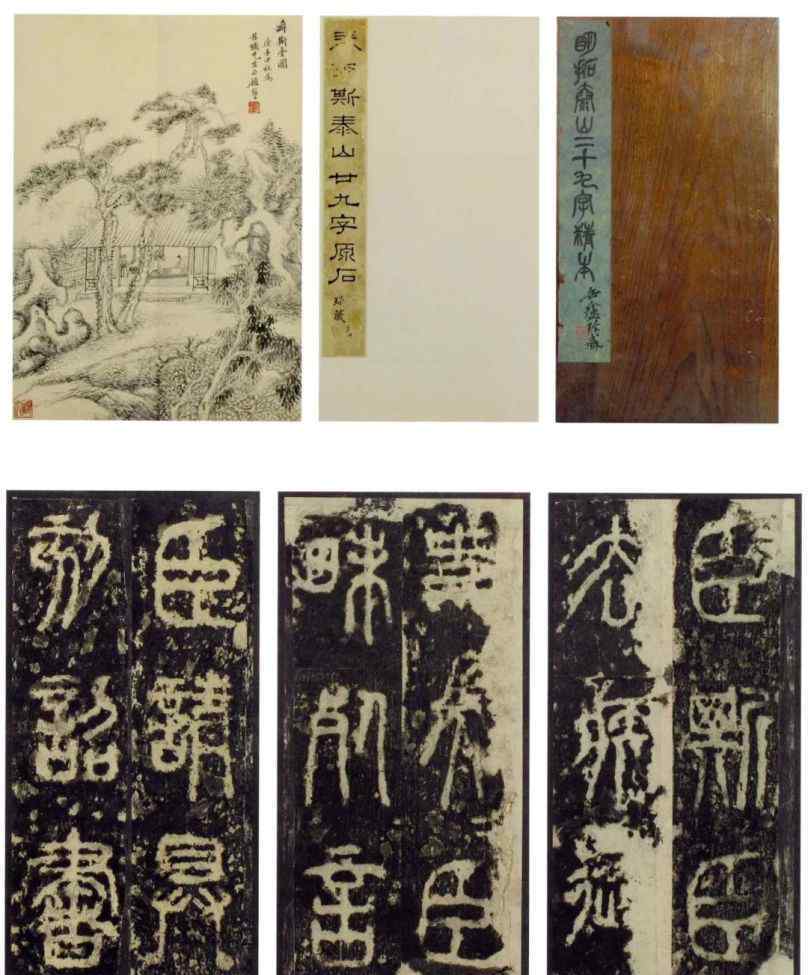 斯泰山廿九字原石
珍藏
明拓泰山二十九字精本
臣斯臣
去疾御
史夫臣
昧死言
臣請具
刻詔書